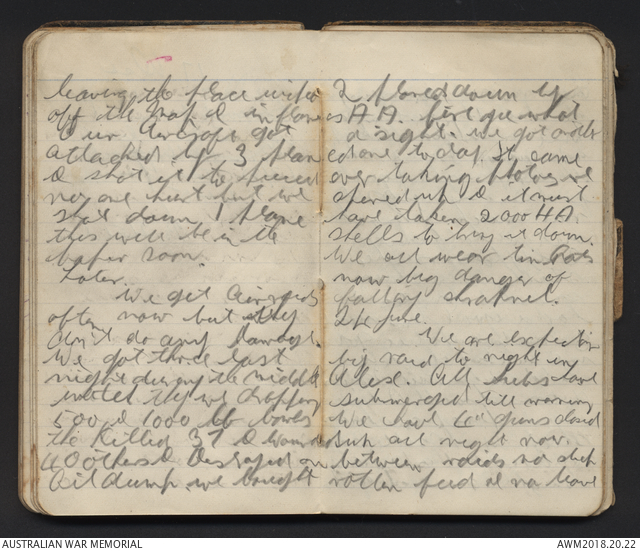 leaving the place wiped
off the map & in flames
our aircraft got
attacked by 3 planes
& shot it to pieces
no one hurt but we
shot down 1 plane
this will be in the
paper soon.
Later.
We get air raids
often now but they
don't do any damage.
We got three last
night during the middle
they we dropping
500 & 1000 lb bombs
the killed 37 & wounded
400 others & destroyed an
oil dump. we brought
2 planes down by
A A. fire gee what
a sight. we got another
one to day. It came
over taking photos we
opened up & it must
have taken 2000 HA.
shells to bring it down.
We all wear tin hats
now big danger of
falling shrapnel.
24 June.
We are expecting
big raid to night in
Alex. All subs have
submerged till morning
We have 4" guns closed
up all night now.
between raids no sleep
rotten feed & no leave
AUSTRALIAN WAR MEMORIAL
AWM2018.20.22